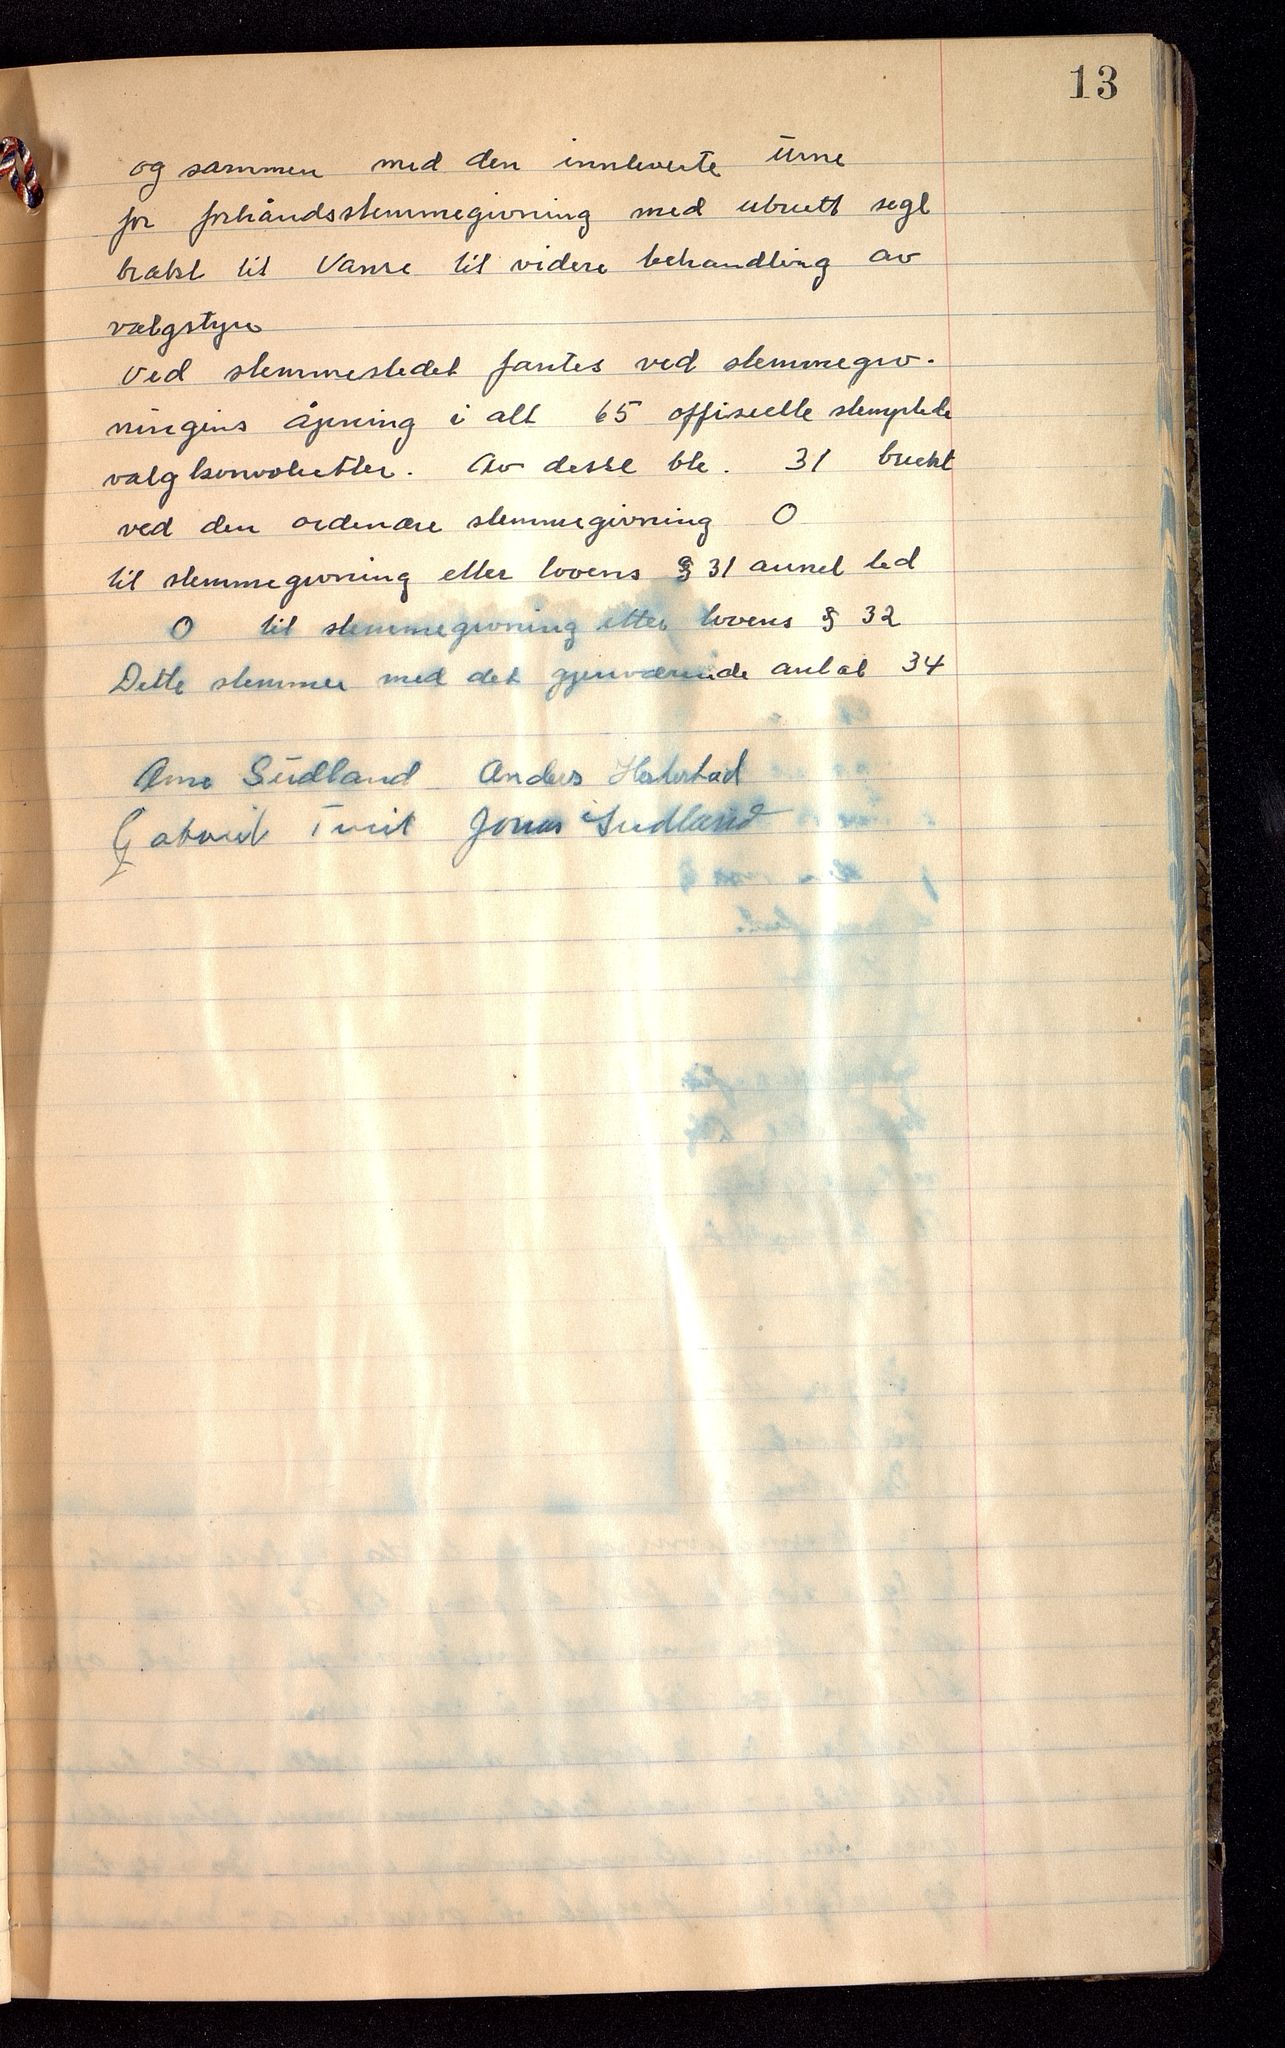 13
og sammen med den innleverte urne
for forhåndsstemmegivning med ubrutt segl
brakt til Vanse til videre behandling av
valgstyre
Ved stemmestedet fantes ved stemmegiv-
ningens åpning i alt 65 offisielle stemplede
valgkonvolutter. Av disse ble. 31 brukt
ved den ordenære stemmegivning 0
til stemmegivning etter lovens § 31 annet led
0 til stemmegivning etter lovens § 32
Dette stemmer med det gjenværende antal 34
Arne Sudland Anders
Gabriel Jonas Sudland